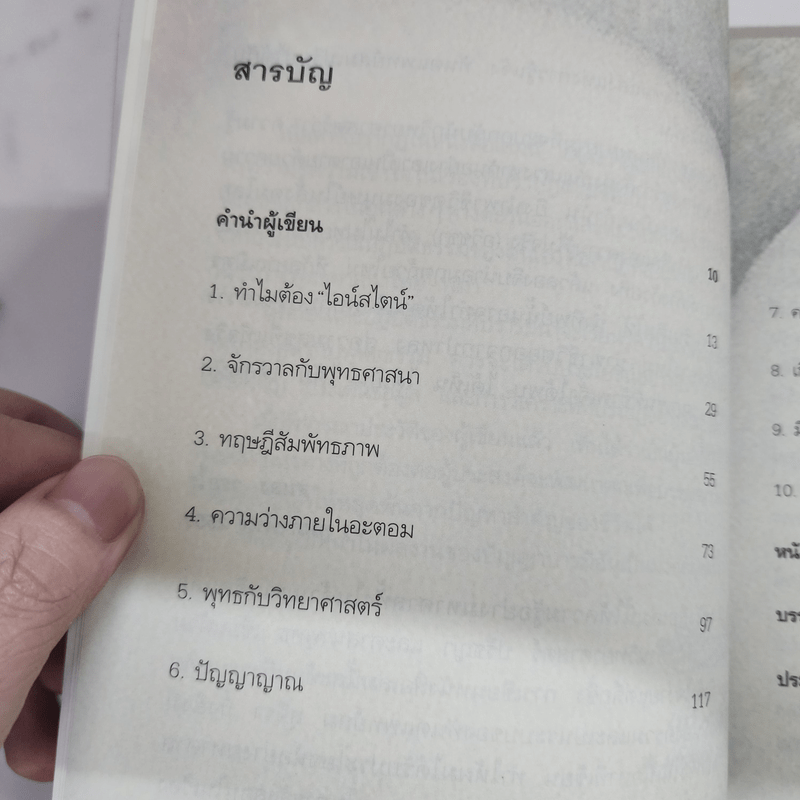 สารบัญ
คำนำผู้เขียน 10
1. ทำไมต้อง “ไอน์สไตน์” 13
2. จักรวาลกับพุทธศาสนา 29
3. ทฤษฎีสัมพัทธภาพ 55
4. ความว่างภายในอะตอม 73
5. พุทธกับวิทยาศาสตร์ 97
6. ปัญญาญาณ 117
7.
8.
9.
10.